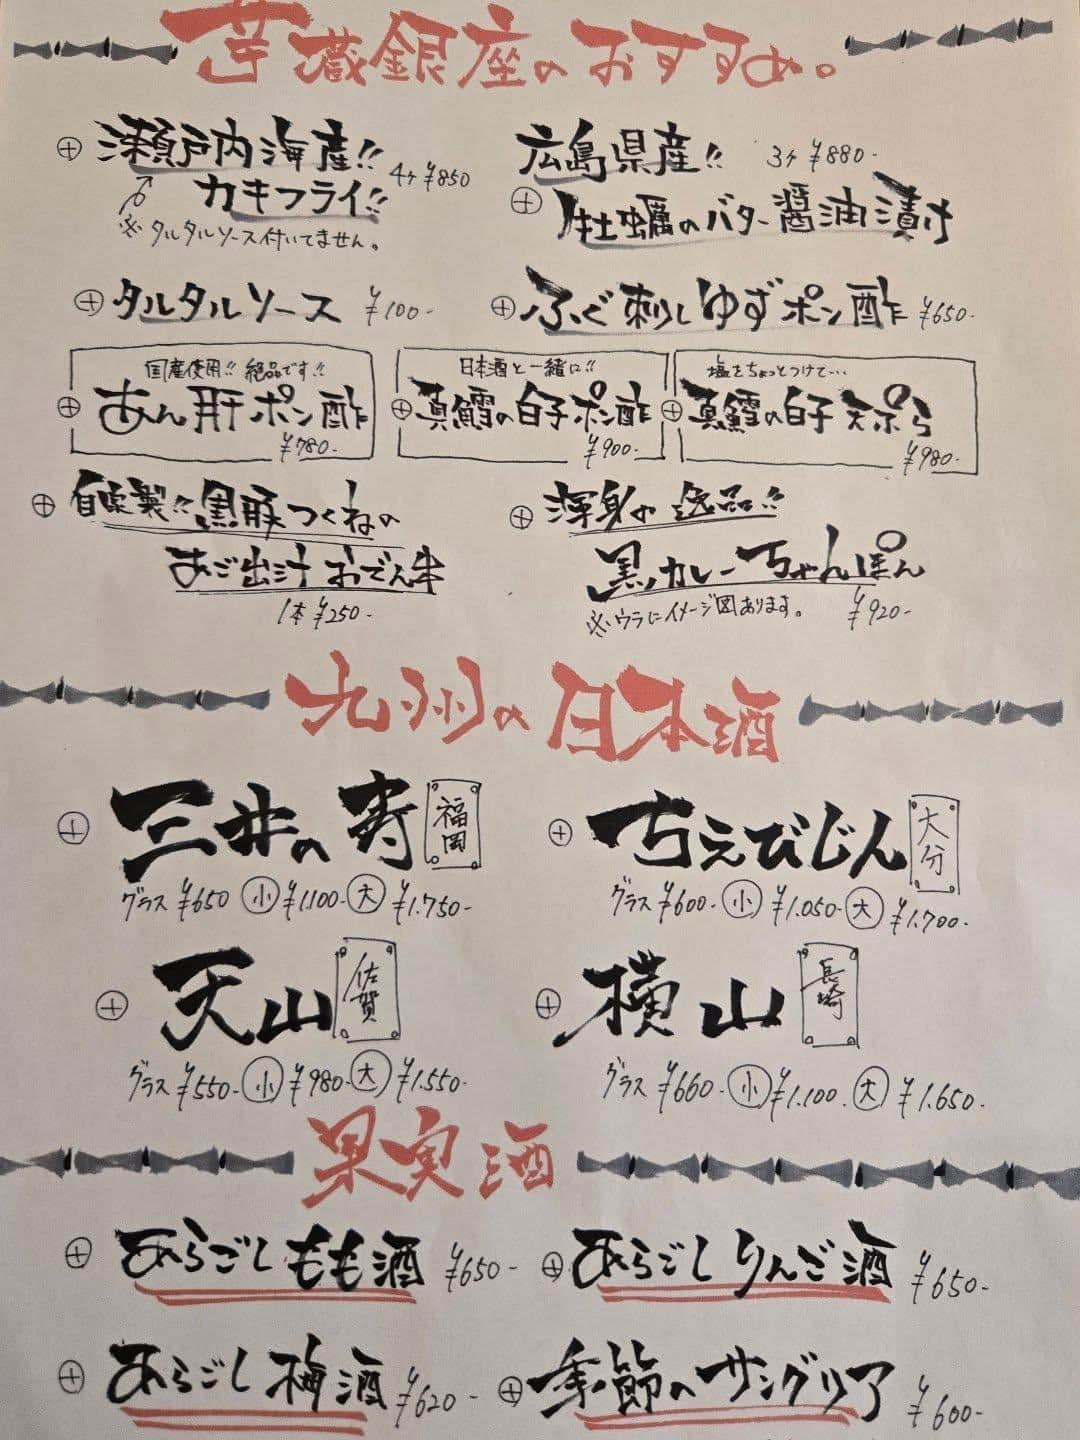 芋蔵銀座のおすすめ。
⊕ 瀬戸内海産!!
カキフライ!! 4ヶ ¥850
※タルタルソース付いてません。
広島県産!! 3ヶ ¥880-
⊕ 牡蠣のバター醤油漬け
⊕ タルタルソース ¥100-
⊕ ふぐ刺しゆずポン酢 ¥650-
国産使用!! 絶品です!!
⊕ あん肝ポン酢
¥780-
日本酒と一緒に!!
⊕ 真鱈の白子ポン酢
¥900-
塩をちょっとつけて…
⊕ 真鱈の白子天ぷら
¥980-
⊕ 自家製!! 黒豚つくねの
あご出汁おでん串
1本 ¥250-
⊕ 渾身の逸品!!
黒カレーちゃんぽん
※ウラにイメージ図あります。 ¥920-
九州の日本酒
⊕ 三井の寿 福岡
グラス ¥650 小 ¥1.100- 大 ¥1.750-
⊕ ちえびじん 大分
グラス ¥600- 小 ¥1.050- 大 ¥1.700-
⊕ 天山 佐賀
グラス ¥550- 小 ¥980- 大 ¥1.550-
⊕ 横山 長崎
グラス ¥660- 小 ¥1.100- 大 ¥1.650-
果実酒
⊕ あらごしもも酒 ¥650-
⊕ あらごしりんご酒 ¥650-
⊕ あらごし梅酒 ¥620-
⊕ 季節のサングリア ¥600-